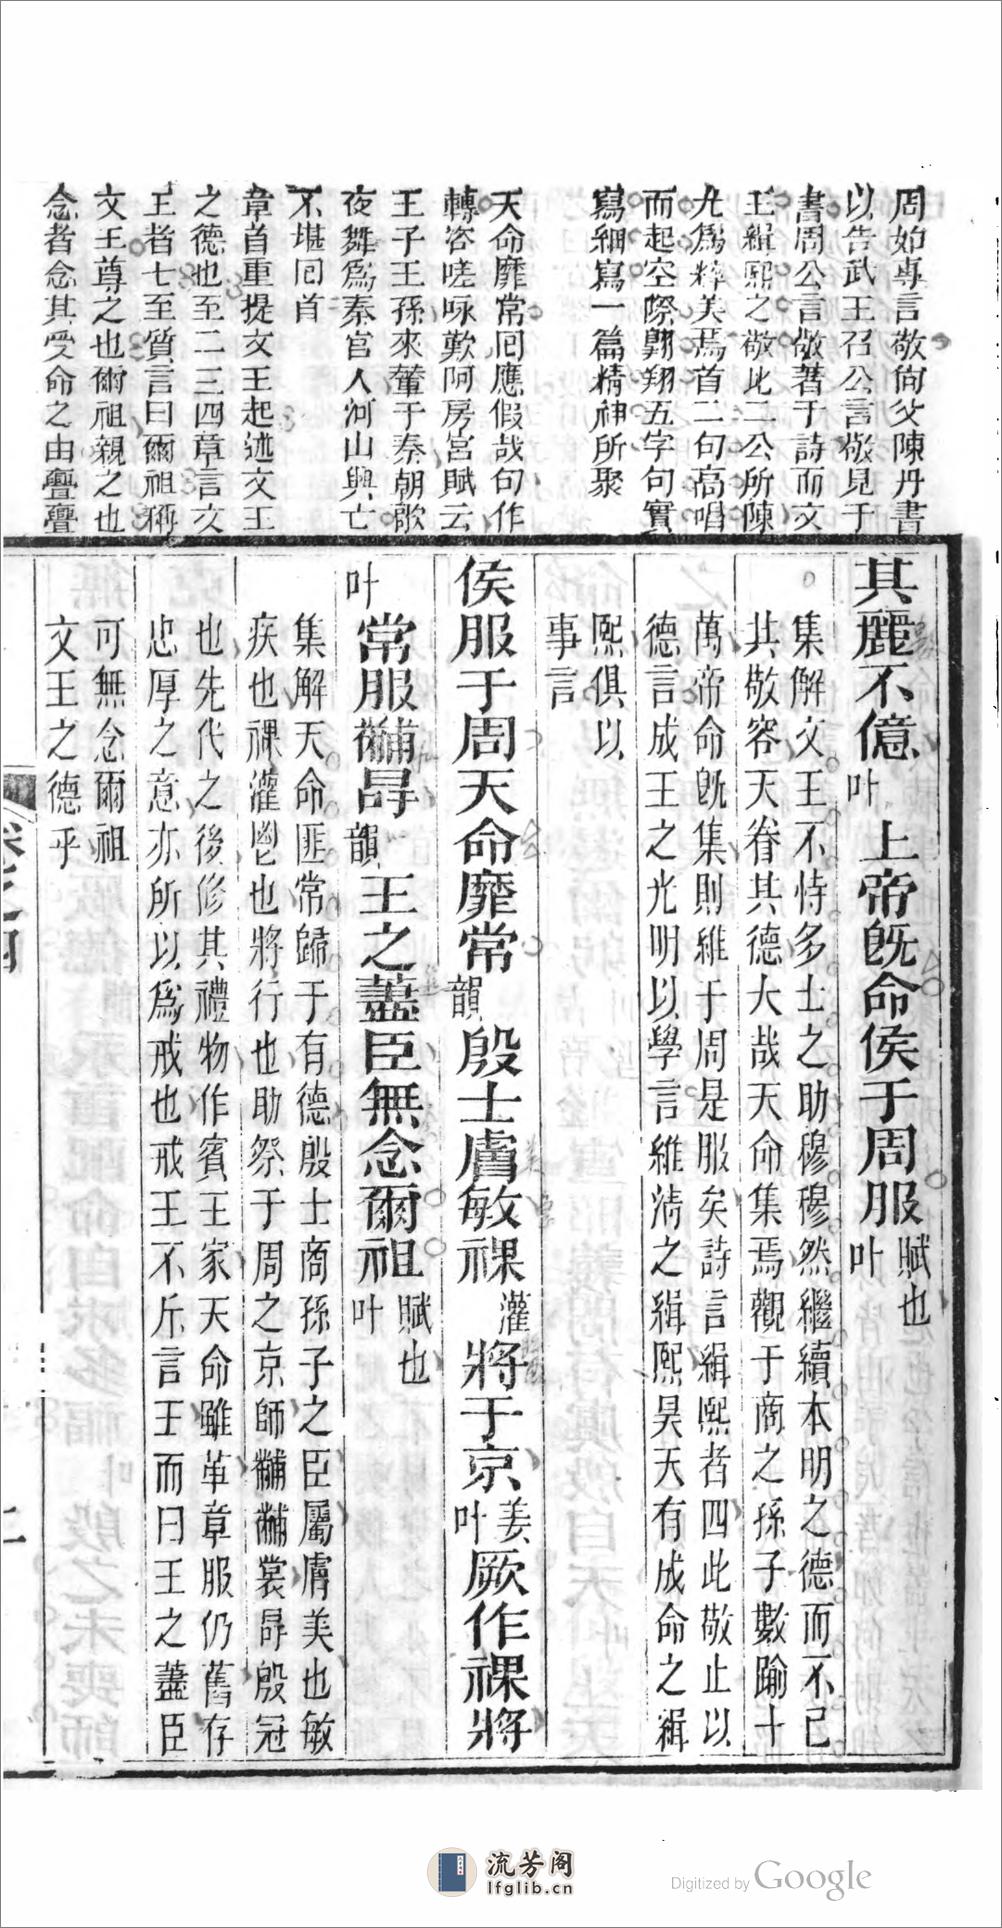 周始專言敬尙父陳丹書
以告武王召公言敬見于
書周公言敬著于詩而文
王緝熙之敬此二公所陳
尤爲粹美焉首二句高唱
而起空際翺翔五字句實
寫細寫一篇精神所聚
天命靡常囘應假哉句作
轉咨嗟咏歎阿房宮賦云
王子王孫來輦于秦朝歌
夜舞爲秦宮人河山興亡
不堪囘首
章首重提文王起述文王
之德也至二三四章言文
王者七至質言曰爾祖稱
文王尊之也爾祖親之也
念者念其受命之由亹亹
其麗不億叶上帝旣命侯于周服叶賦也
集解文王不恃多士之助穆穆然繼續本明之德而不已
其敬容天眷其德大哉天命集焉觀于商之孫子數踰十
萬帝命旣集則維于周是服矣詩言緝熙者四此敬止以
德言成王之光明以學言維淸之緝熙昊天有成命之緝
熙俱以
事言
侯服于周天命靡常韻殷士膚敏祼灌將于京姜叶厥作祼將
叶常服黼冔韻王之藎臣無念爾祖叶賦也
集解天命匪常歸于有德殷士商孫子之臣屬膚美也敏
疾也祼灌鬯也將行也助祭于周之京師黼黼裳冔殷冠
也先代之後修其禮物作賓王家天命雖革章服仍舊存
忠厚之意亦所以爲戒也戒王不斥言王而曰王之藎臣
可無念爾祖
文王之德乎
卷之四
流芳阁
lfglib.cn
Digitized by Google